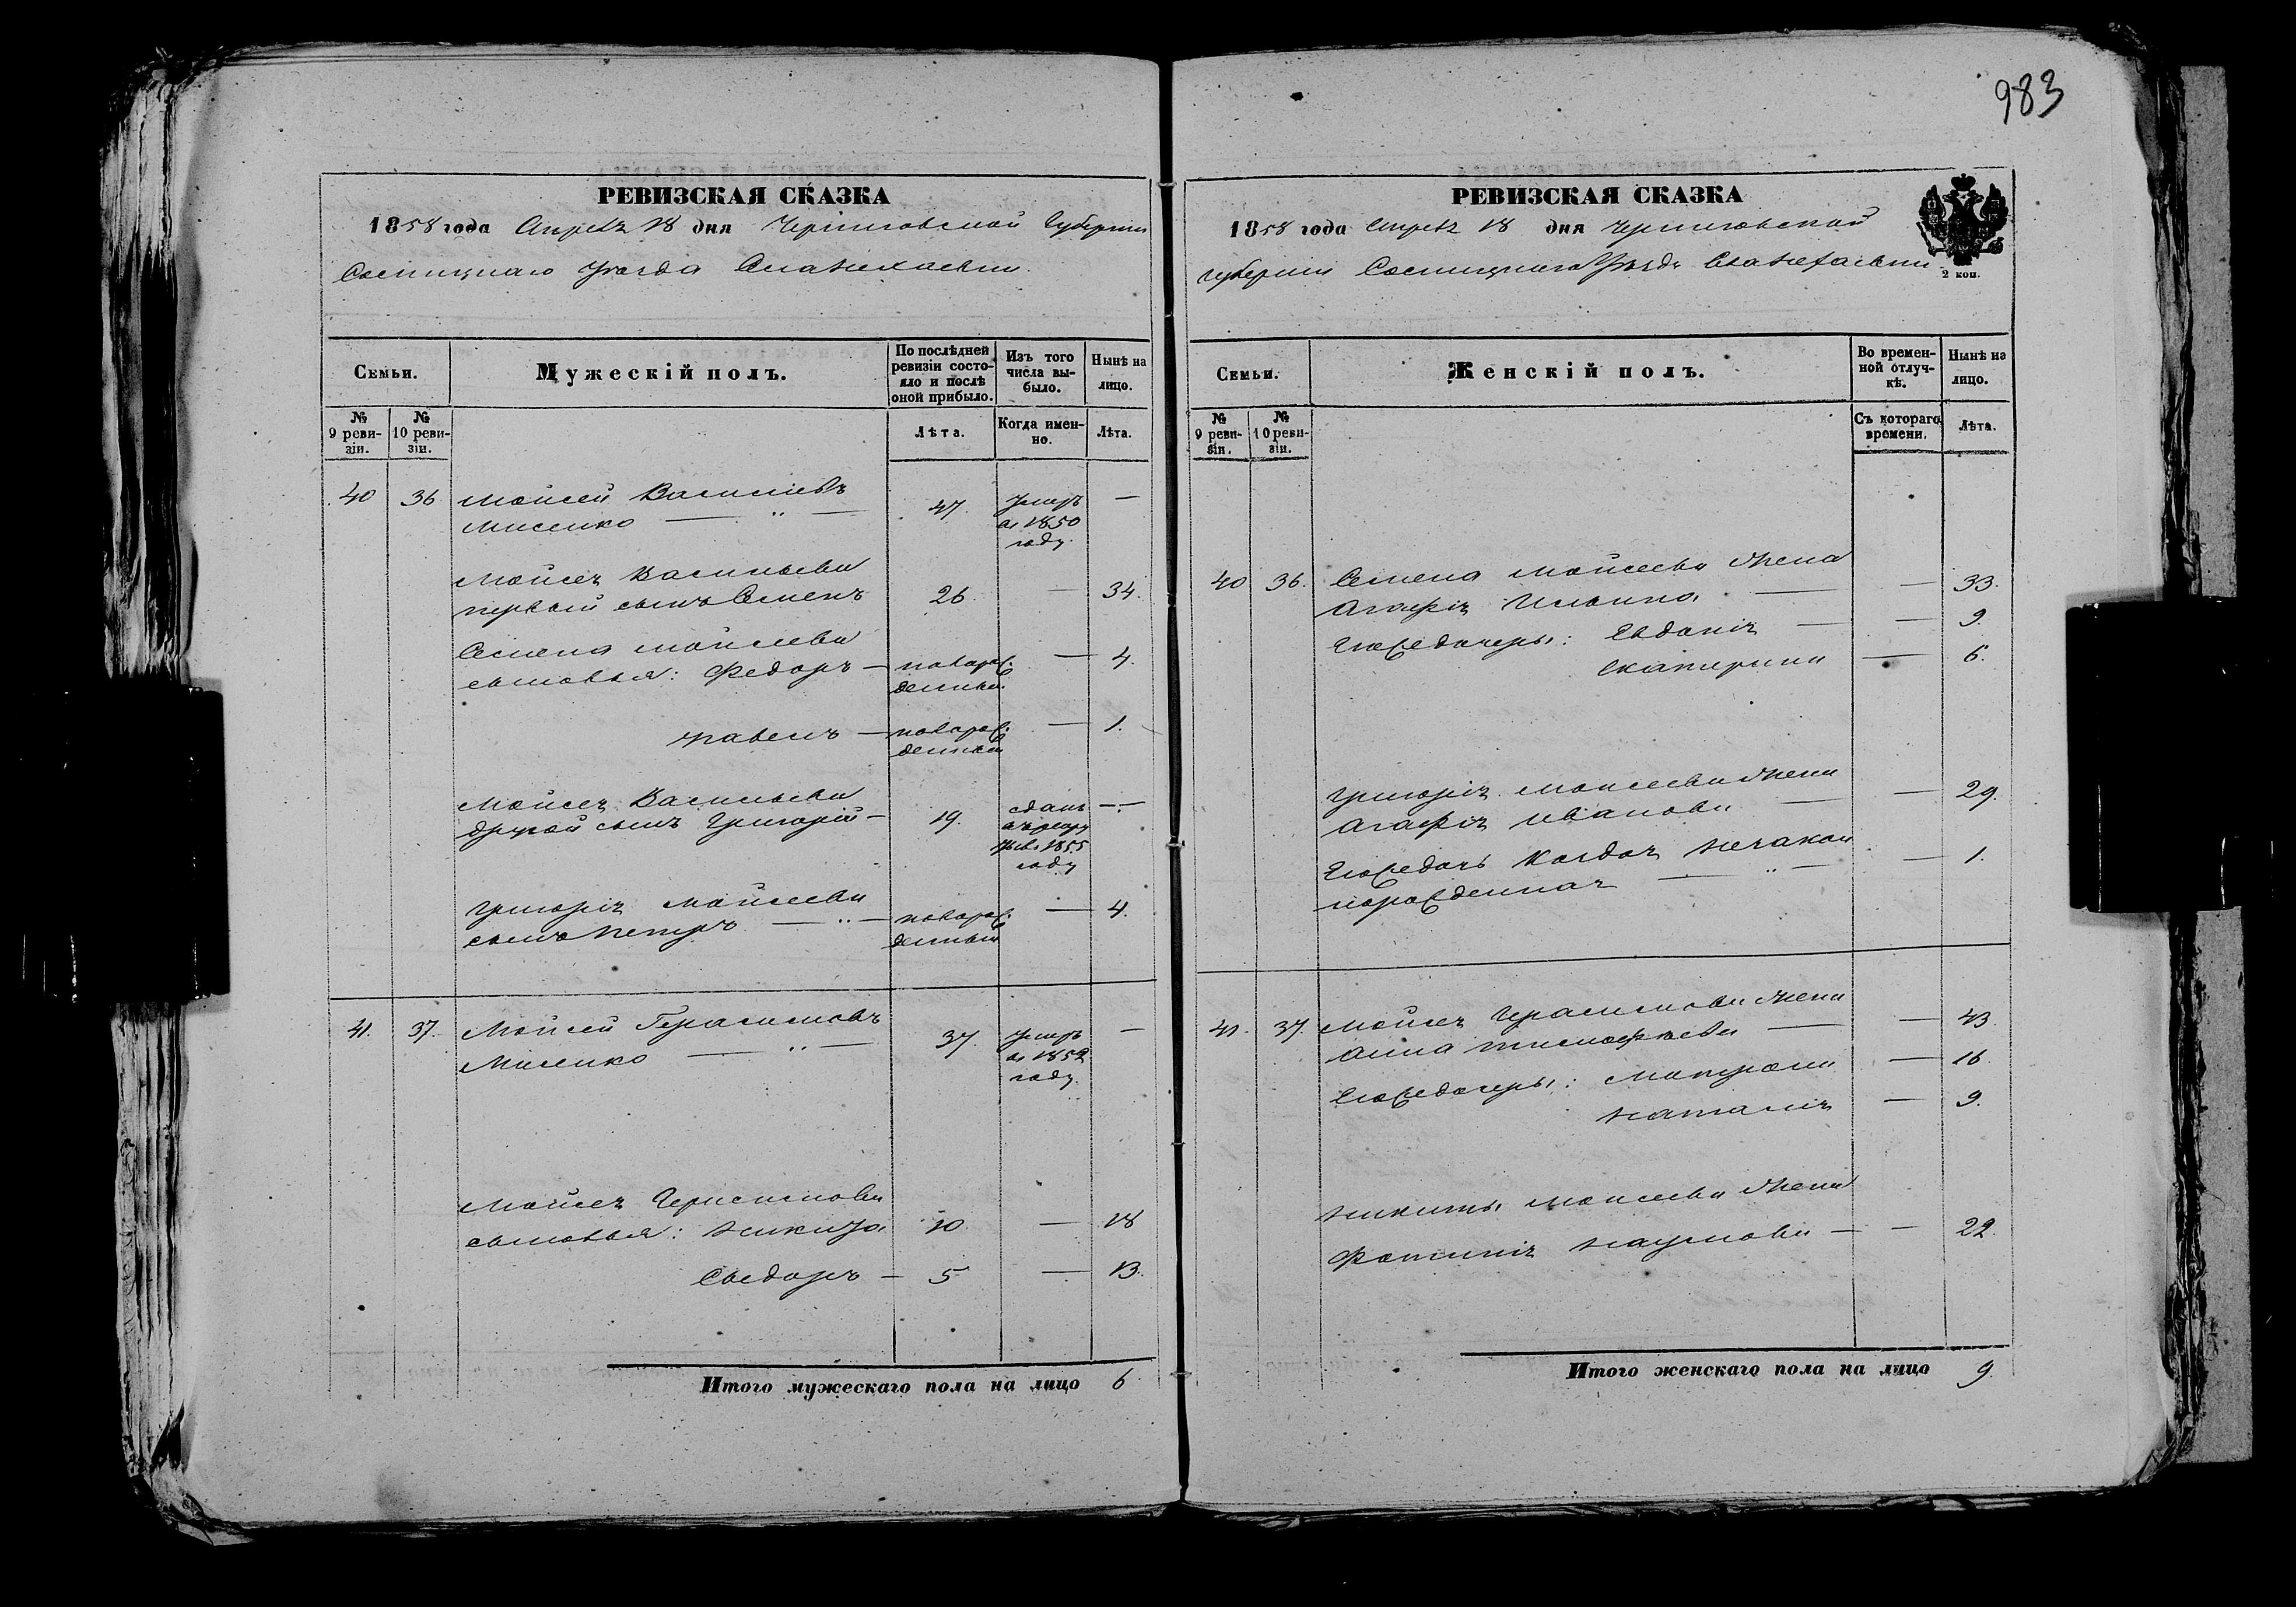 983
РЕВИЗСКАЯ СКАЗКА
1858 года Апреля 18 дня Черниговской Губернии
Сосницкаго Уезда
Семьи.
Мужескій полъ.
По послѣдней ревизіи состояло и послѣ оной прибыло.
Изъ того числа выбыло.
Нынѣ на лицо.
№ 9 ревизіи.
№ 10 ревизіи.
Лѣта.
Когда именно.
Лѣта.
40 36 Мойсей Васильевъ
Мисенко — „ — 47. умеръ въ 1850 году. —
Мойсея Васильева
первый сынъ Семенъ 26. — 34.
Семена Мойсеева
сыновья: Федоръ — новорожденный. — 4.
Павелъ — новорожденный — 1.
Мойсея Васильева
другой сынъ Григорій — 19. сданъ въ рекруты въ 1855 году —
Григорія Мойсеева
сынъ Петръ — „ — новорожденный — 4.
41. 37. Мойсей Герасимовъ
Мисенко — „ — 37. умеръ въ 1852 году. —
Мойсея Герасимова
сыновья: Никита 10 — 18
Сидоръ — 5 — 13.
Итого мужескаго пола на лицо 6
РЕВИЗСКАЯ СКАЗКА
1858 года Апреля 18 дня Черниговской
губернии Сосницкаго Уезда
2 коп.
Семьи.
Женскій полъ.
Во временной отлучкѣ.
Нынѣ на лицо.
№ 9 ревизіи.
№ 10 ревизіи.
Съ котораго времени.
Лѣта.
40 36. Семена Мойсеева жена
Агафія Ильина — — 33.
Его же дочери: Евдокія — — 9
Екатерина — 6.
Григорія Моисеева жена
Агафія Иванова — — 29.
Его же дочь
порожденная — „ — — 1.
41. 37. Мойсея Герасимова жена
Анна Тимофѣева — — 43.
Его же дочери: Матрона — 16
Наталія — 9.
Никиты Моисеева жена
Фотинія Наумова — — 22.
Итого женскаго пола на лицо 9.